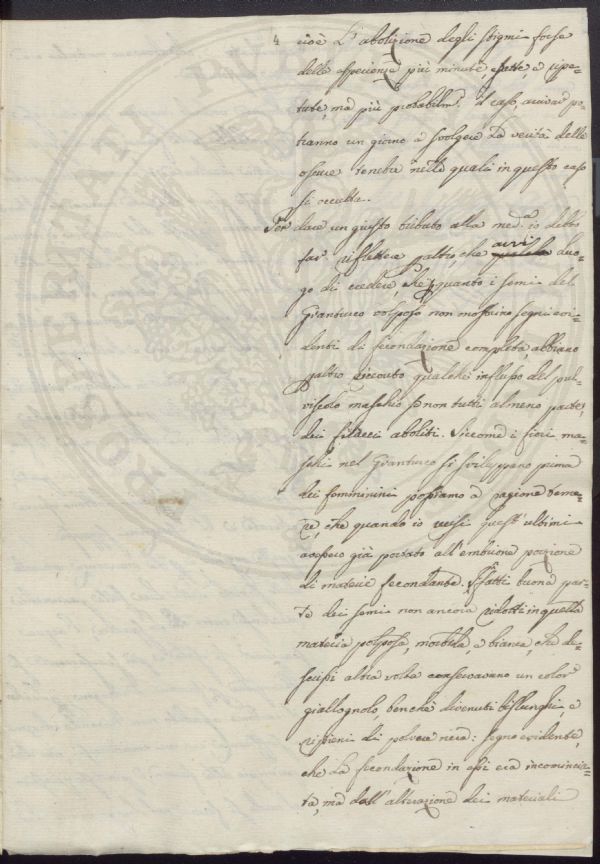 4 cioè L'abolizione degli stigmi forse
delle esperienze più minute, esatte, e ripe=
tute, mà più probabilm.e il caso, avrà po=
tranno un giorno à svolgere La verità dalle
oscure tenebre nelle quali in questo caso
si occulta.
Per dare un giusto tributo alla med.a io debbo
far riflettere p altro, che avvi luo=
go di credere che quanto i semi del
Granturco polposo non mostrino segni evi=
denti di fecondazione completa, abbiano
p altro ricevuto qualche influsso del pul=
viscolo maschio se non tutti almeno parte
dei filacci aboliti. Siccome i fiori ma=
schi nel Granturco si sviluppano prima
dei femminini possiamo à ragione teme=
re, che quando io recisi quest'ultimi
avessero già portato all'embrione porzione
di materia fecondante. Infatti buona par=
te dei semi non ancora ridotti in quella
materia polposa, morbida, e bianca, che de=
scrissi altra volta conservavano un color
giallognolo, benchè divenuti bislunghi, e
ripieni di polvere nera: segno evidente,
che La fecondazione in essi era incomincia=
ta, mà dall'alterazione dei materiali